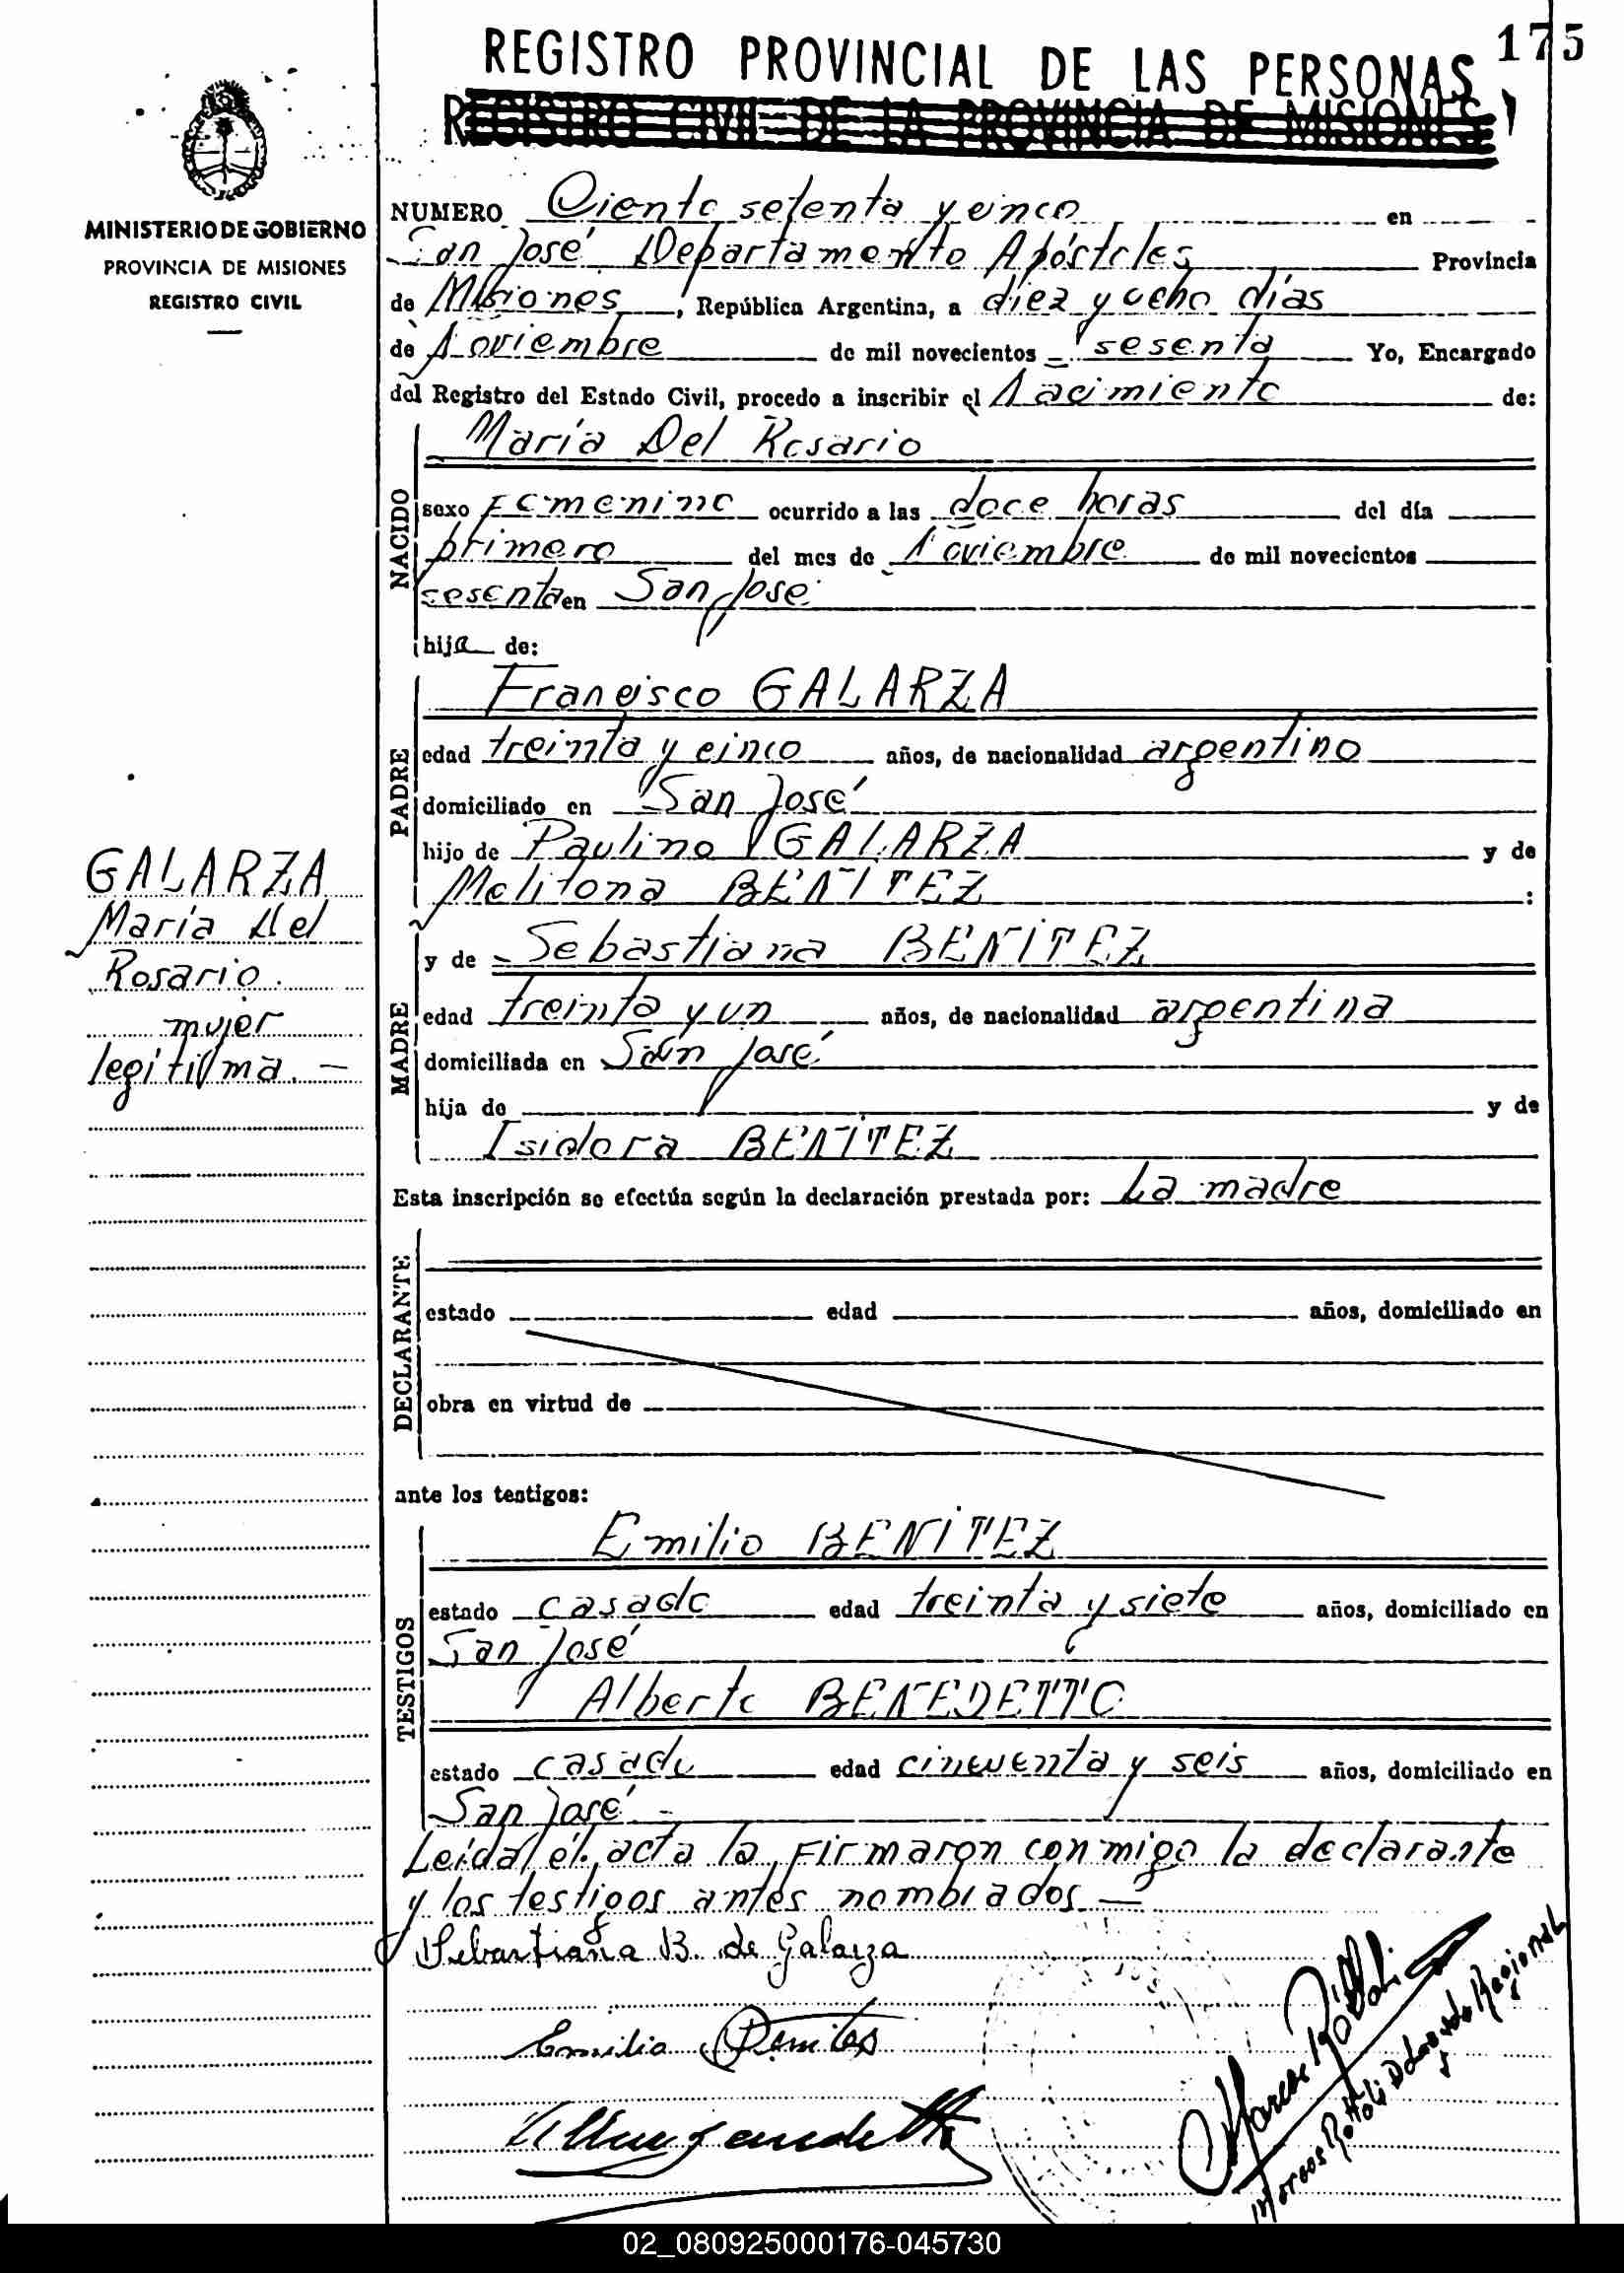 175
REGISTRO PROVINCIAL DE LAS PERSONAS
REGISTRO CIVIL DE LA PROVINCIA DE MISIONES
MINISTERIO DE GOBIERNO
PROVINCIA DE MISIONES
REGISTRO CIVIL
NUMERO Ciento setenta y cinco en
San José Departamento Apóstoles Provincia
de Misiones, República Argentina, a diez y ocho días
de Noviembre de mil novecientos sesenta Yo, Encargado
del Registro del Estado Civil, procedo a inscribir el Nacimiento de:
NACIDO
María Del Rosario
sexo Femenino ocurrido a las doce horas del día
primero del mes de Noviembre de mil novecientos
sesenta en San José
hija de:
PADRE
Francisco GALARZA
edad treinta y cinco años, de nacionalidad argentino
domiciliado en San José
hijo de Paulino GALARZA y de
Melitona BENITEZ :
MADRE
y de Sebastiana BENITEZ
edad treinta y un años, de nacionalidad argentina
domiciliada en San José
hija de y de
Isidora BENITEZ
GALARZA
María Del
Rosario.
mujer
legítima. —
Esta inscripción se efectúa según la declaración prestada por: La madre
DECLARANTE
estado edad años, domiciliado en
obra en virtud de
ante los testigos:
TESTIGOS
Emilio BENITEZ
estado casado edad treinta y siete años, domiciliado en
San José
Alberto BENEDETTO
estado casado edad cincuenta y seis años, domiciliado en
San José -
Leída el acta la firmaron conmigo la declarante
y los testigos antes nombrados —
Sebastiana B. de Galarza
Emilio Benites
Marcos Rottoli Delegado Regional
02_080925000176-045730